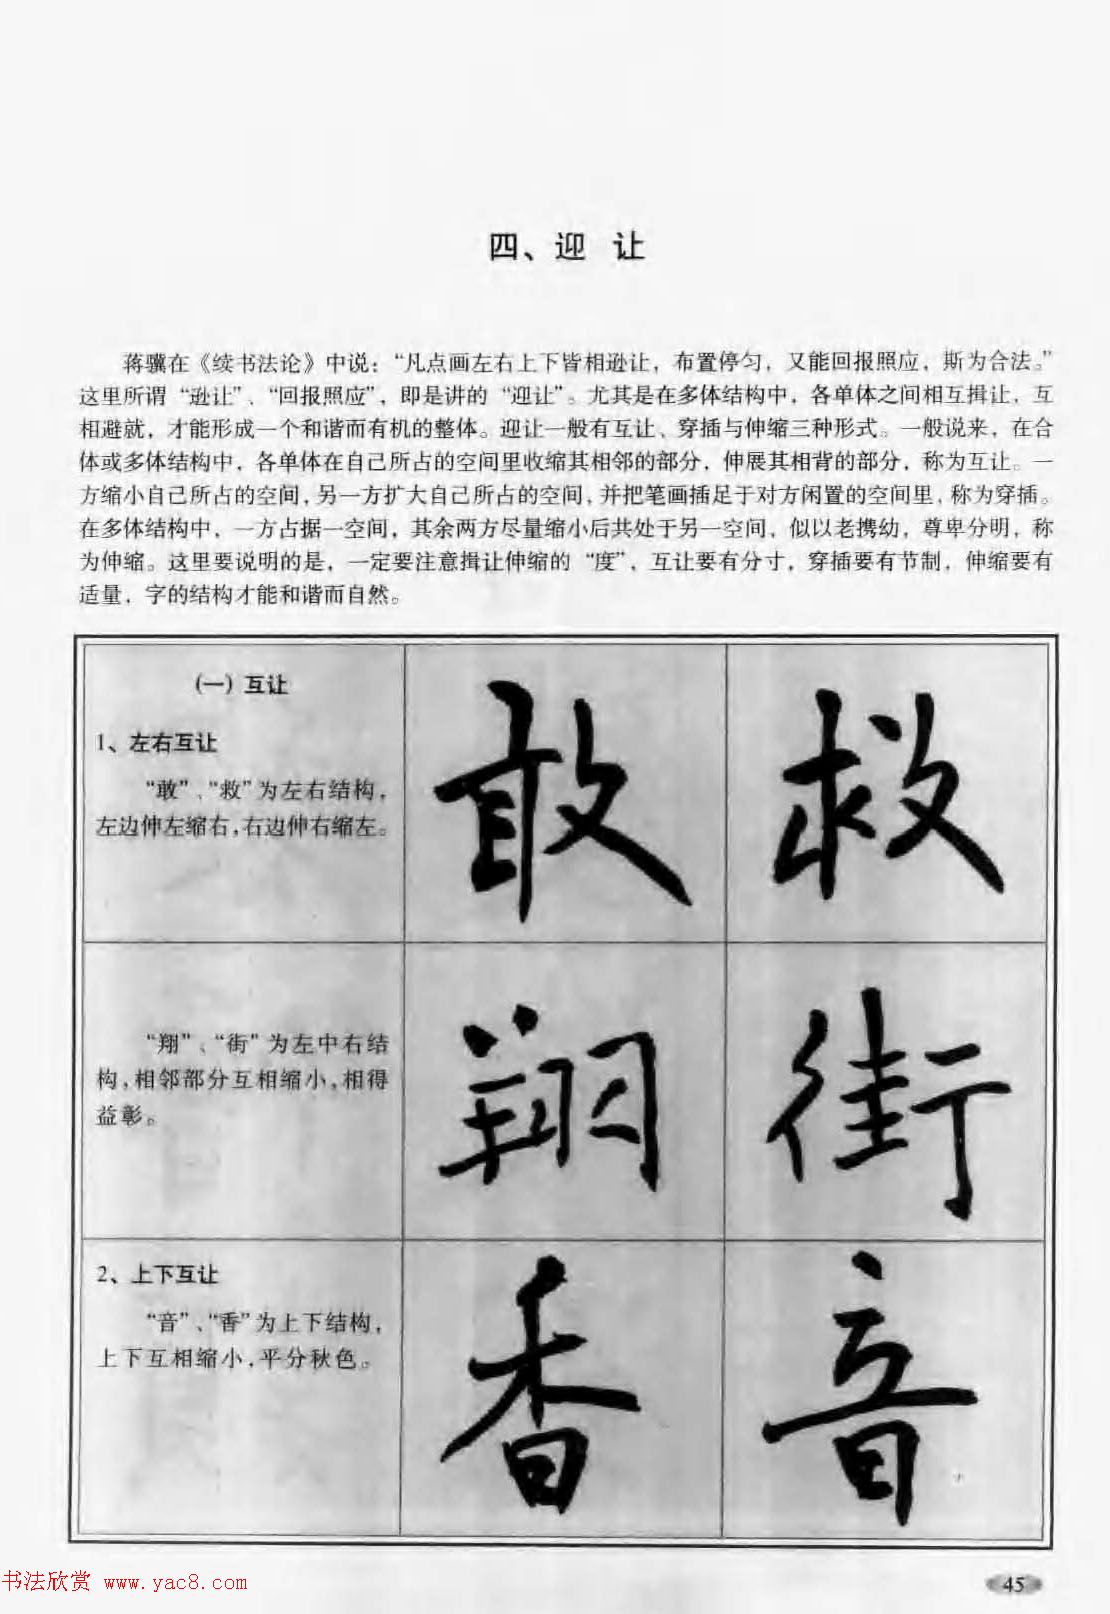 四、迎 让
蒋骥在《续书法论》中说：“凡点画左右上下皆相逊让，布置停匀，又能回报照应，斯为合法。”
这里所谓“逊让”、“回报照应”，即是讲的“迎让”。尤其是在多体结构中，各单体之间相互揖让，互
相避就，才能形成一个和谐而有机的整体。迎让一般有互让、穿插与伸缩三种形式。一般说来，在合
体或多体结构中，各单体在自己所占的空间里收缩其相邻的部分，伸展其相背的部分，称为互让。一
方缩小自己所占的空间，另一方扩大自己所占的空间，并把笔画插足于对方闲置的空间里，称为穿插。
在多体结构中，一方占据一空间，其余两方尽量缩小后共处于另一空间，似以老携幼，尊卑分明，称
为伸缩。这里要说明的是，一定要注意揖让伸缩的“度”，互让要有分寸，穿插要有节制，伸缩要有
适量，字的结构才能和谐而自然。
（一）互让
1、左右互让
“敢”、“救”为左右结构，
左边伸左缩右，右边伸右缩左。
敢 救
“翔”、“街”为左中右结
构，相邻部分互相缩小，相得
益彰。
翔 街
2、上下互让
“音”、“香”为上下结构，
上下互相缩小，平分秋色。
香 音
书法欣赏 www.yac8.com
45